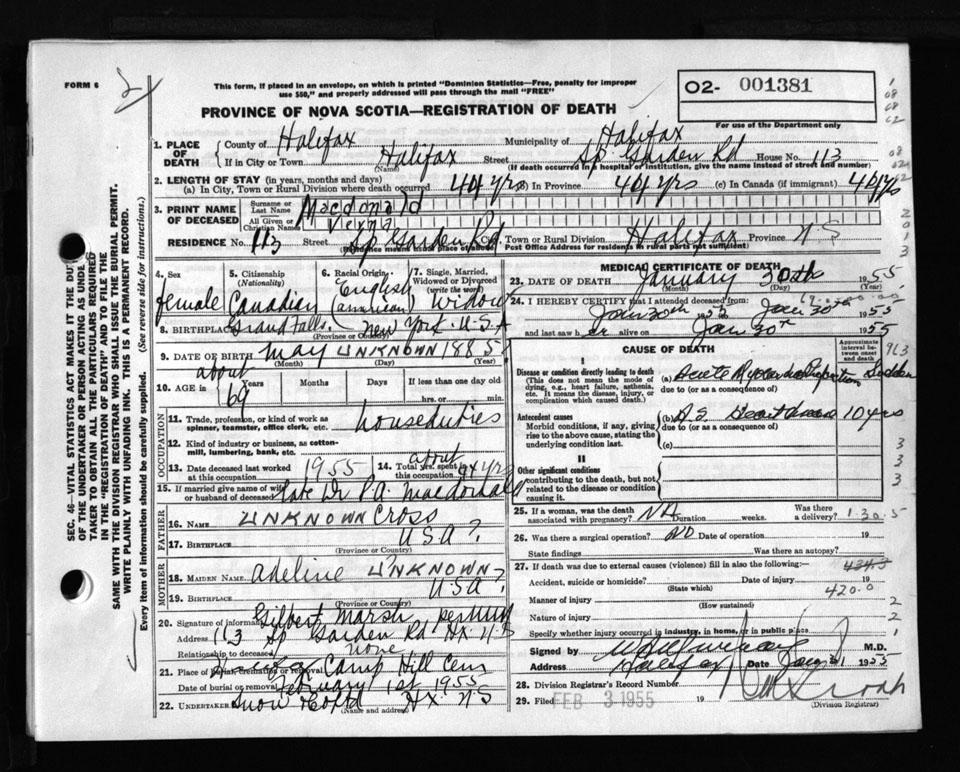 FORM 6
This form, if placed in an envelope, on which is printed "Dominion Statistics—Free, penalty for improper
use $50," and properly addressed will pass through the mail "FREE"
PROVINCE OF NOVA SCOTIA—REGISTRATION OF DEATH
02- 001381
For use of the Department only
SEC. 46—VITAL STATISTICS ACT MAKES IT THE DUTY
OF THE UNDERTAKER OR PERSON ACTING AS UNDER-
TAKER TO OBTAIN ALL THE PARTICULARS REQUIRED
IN THE "REGISTRATION OF DEATH" AND TO FILE THE
SAME WITH THE DIVISION REGISTRAR WHO SHALL ISSUE THE BURIAL PERMIT.
WRITE PLAINLY WITH UNFADING INK. THIS IS A PERMANENT RECORD.
Every item of information should be carefully supplied. (See reverse side for instructions.)
1. PLACE OF DEATH
County of Halifax Municipality of Halifax
If in City or Town Halifax Street Sp Garden Rd House No. 113
(Name) (If death occurred in a hospital or institution, give the name instead of street and number)
2. LENGTH OF STAY (in years, months and days)
(a) In City, Town or Rural Division where death occurred 44 yrs (b) In Province 44 yrs (c) In Canada (if immigrant) 44 yrs
3. PRINT NAME OF DECEASED
Surname or Last Name Macdonald
All Given or Christian Names Verna
RESIDENCE No. 113 Street Sp Garden Rd. City, Town or Rural Division Halifax Province N.S
Post Office Address for residents in rural parts not sufficient)
4. Sex female
5. Citizenship (Nationality) Canadian
6. Racial Origin English (American)
7. Single, Married, Widowed or Divorced (write the word) Widow
8. BIRTHPLACE Grand falls. New York. U.S.A
(Province or Country)
9. DATE OF BIRTH May UNKNOWN 1885
(Month) (Day) (Year)
10. AGE in about 69 Years Months Days If less than one day old
hrs. or min.
OCCUPATION
11. Trade, profession, or kind of work as spinner, teamster, office clerk, etc. houseduties
12. Kind of industry or business, as cotton-mill, lumbering, bank, etc.
13. Date deceased last worked at this occupation 1955 14. Total yrs. spent in this occupation about 44 yrs
15. If married give name of wife or husband of deceased late Dr P.A. Macdonald
FATHER
16. NAME UNKNOWN Cross
17. BIRTHPLACE USA ?
(Province or Country)
MOTHER
18. MAIDEN NAME Adeline UNKNOWN ?
19. BIRTHPLACE USA ?
(Province or Country)
20. Signature of informant Gilbert Marsh
Address 113 Sp Garden Rd Hx N.S
Relationship to deceased none
21. Place of burial, cremation or removal Camp Hill Cem
Date of burial or removal February 1st 1955
22. UNDERTAKER Snow Hx NS
(Name and address)
MEDICAL CERTIFICATE OF DEATH
23. DATE OF DEATH January 30th 1955
(Month) (Day) (Year)
24. I HEREBY CERTIFY that I attended deceased from:
Jan 30th 1955 to Jan 30th 1955
and last saw her alive on Jan 30th 1955
CAUSE OF DEATH
Approximate interval between onset and death
I
Disease or condition directly leading to death
(This does not mean the mode of dying, e.g., heart failure, asthenia, etc. It means the disease, injury, or complication which caused death.)
(a) Acute Sudden
due to (or as a consequence of)
Antecedent causes
Morbid conditions, if any, giving rise to the above cause, stating the underlying condition last.
(b) A.S. Heart disease 10 yrs
due to (or as a consequence of)
(c)
II
Other significant conditions
contributing to the death, but not related to the disease or condition causing it.
25. If a woman, was the death associated with pregnancy? NA Duration weeks. Was there a delivery? 1.30.5
26. Was there a surgical operation? NO Date of operation 19
State findings Was there an autopsy?
27. If death was due to external causes (violence) fill in also the following:— 434.3
Accident, suicide or homicide? Date of injury 19
(State which) 420.0
Manner of injury
(How sustained)
Nature of injury
Specify whether injury occurred in industry, in home, or in public place
Signed by M.D.
Address Halifax Date Jan 31 1955
28. Division Registrar's Record Number
29. Filed FEB 3 1955 19
(Division Registrar)